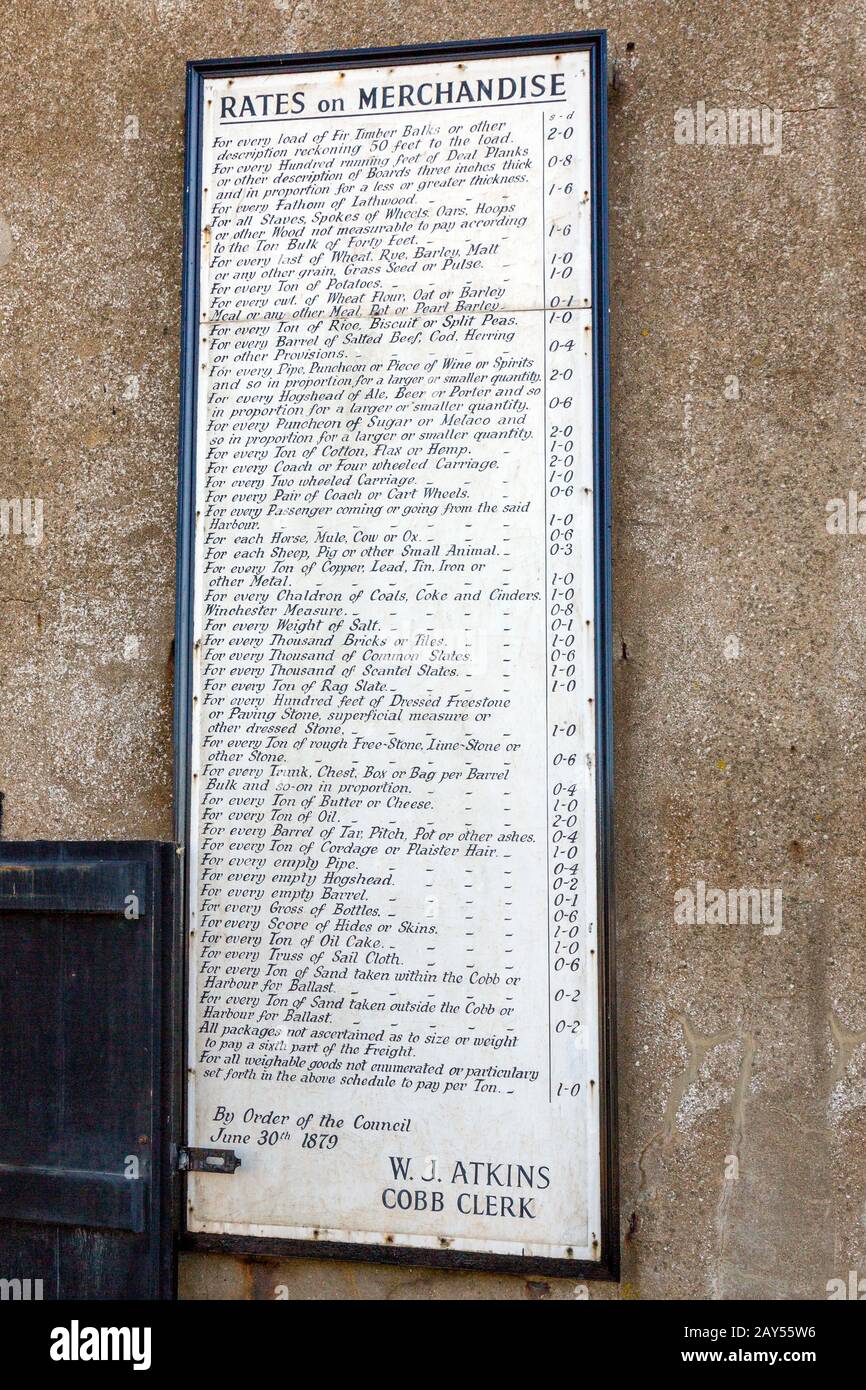 RATES on MERCHANDISE
s - d
For every load of Fir Timber Balks or other
description reckoning 50 feet to the load. 2-0
For every Hundred running feet of Deal Planks
or other description of Boards three inches thick
and in proportion for a less or greater thickness. 0-8
For every Fathom of Lathwood. - - - 1-6
For all Staves, Spokes of Wheels, Oars, Hoops
or other Wood not measurable to pay according
to the Ton Bulk of Forty Feet. - - - 1-6
For every last of Wheat, Rye, Barley, Malt
or any other grain, Grass Seed or Pulse. - 1-0
For every Ton of Potatoes. - - - - 1-0
For every cwt. of Wheat Flour, Oat or Barley
Meal or any other Meal, Pot or Pearl Barley. 0-1
For every Ton of Rice, Biscuit or Split Peas. 1-0
For every Barrel of Salted Beef, Cod, Herring
or other Provisions. - - - - - 0-4
For every Pipe, Puncheon or Piece of Wine or Spirits
and so in proportion for a larger or smaller quantity. 2-0
For every Hogshead of Ale, Beer or Porter and so
in proportion for a larger or smaller quantity. 0-6
For every Puncheon of Sugar or Melaco and
so in proportion for a larger or smaller quantity. 2-0
For every Ton of Cotton, Flax or Hemp. - 1-0
For every Coach or Four wheeled Carriage. 2-0
For every Two wheeled Carriage. - - - 1-0
For every Pair of Coach or Cart Wheels. - 0-6
For every Passenger coming or going from the said
Harbour. - - - - - - - 1-0
For each Horse, Mule, Cow or Ox. - - - 0-6
For each Sheep, Pig or other Small Animal. - 0-3
For every Ton of Copper, Lead, Tin, Iron or
other Metal. - - - - - - 1-0
For every Chaldron of Coals, Coke and Cinders. 1-0
Winchester Measure. - - - - - 0-8
For every Weight of Salt. - - - - 0-1
For every Thousand Bricks or Tiles. - - 1-0
For every Thousand of Common Slates. - 0-6
For every Thousand of Scantel Slates. - - 1-0
For every Ton of Rag Slate. - - - - 1-0
For every Hundred feet of Dressed Freestone
or Paving Stone, superficial measure or
other dressed Stone. - - - - - 1-0
For every Ton of rough Free-Stone, Lime-Stone or
other Stone. - - - - - - 0-6
For every Trunk, Chest, Box or Bag per Barrel
Bulk and so-on in proportion. - - - 0-4
For every Ton of Butter or Cheese. - - 1-0
For every Ton of Oil. - - - - - 2-0
For every Barrel of Tar, Pitch, Pot or other ashes. 0-4
For every Ton of Cordage or Plaister Hair. - 1-0
For every empty Pipe. - - - - 0-4
For every empty Hogshead. - - - 0-2
For every empty Barrel. - - - - 0-1
For every Gross of Bottles. - - - - 0-6
For every Score of Hides or Skins. - - 1-0
For every Ton of Oil Cake. - - - - 1-0
For every Truss of Sail Cloth. - - - 0-6
For every Ton of Sand taken within the Cobb or
Harbour for Ballast. - - - - - 0-2
For every Ton of Sand taken outside the Cobb or
Harbour for Ballast. - - - - - 0-2
All packages not ascertained as to size or weight
to pay a sixth part of the Freight.
For all weighable goods not enumerated or particulary
set forth in the above schedule to pay per Ton. - 1-0
By Order of the Council
June 30th 1879
W. J. ATKINS
COBB CLERK
alamy
Image ID: 2AY55W6
www.alamy.com